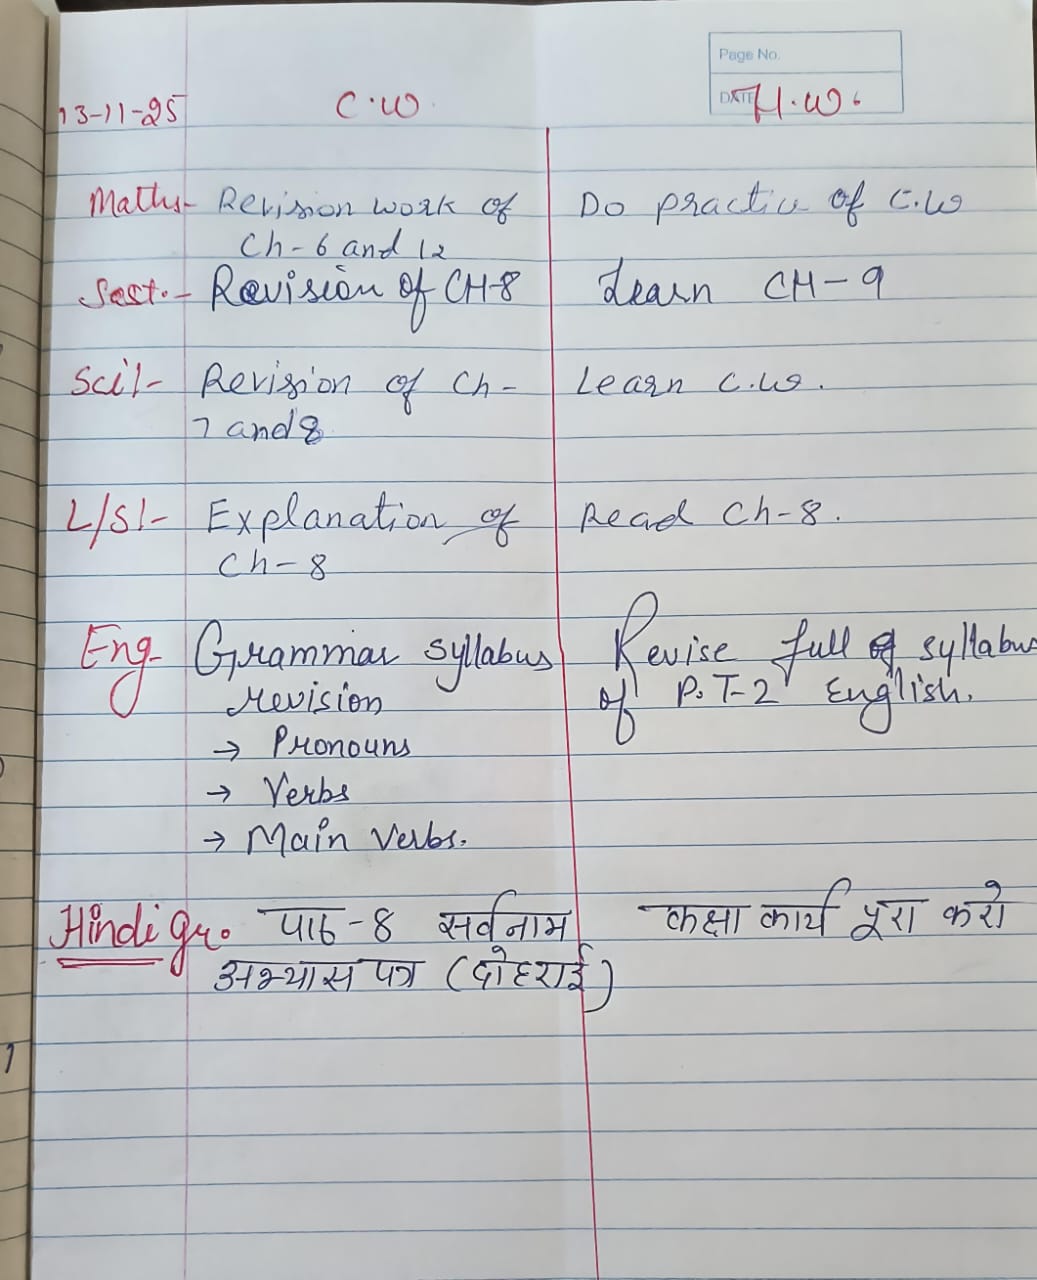 Page No.
DATE
13-11-25 C.W H.W.
Maths- Revision work of Do practice of C.W
Ch-6 and 12
Sast.- Revision of CH-8 Learn CH-9
Sci|- Revision of Ch- Learn C.W.
7 and 8
L/S|- Explanation of Read Ch-8.
Ch-8
Eng- Grammar syllabus Revise full syllabus
revision of P.T-2 English.
→ Pronouns
→ Verbs
→ Main Verbs.
Hindi gr. पाठ-8 सर्वनाम कक्षा कार्य पूरा करो
अभ्यास पत्र (दोहराई)